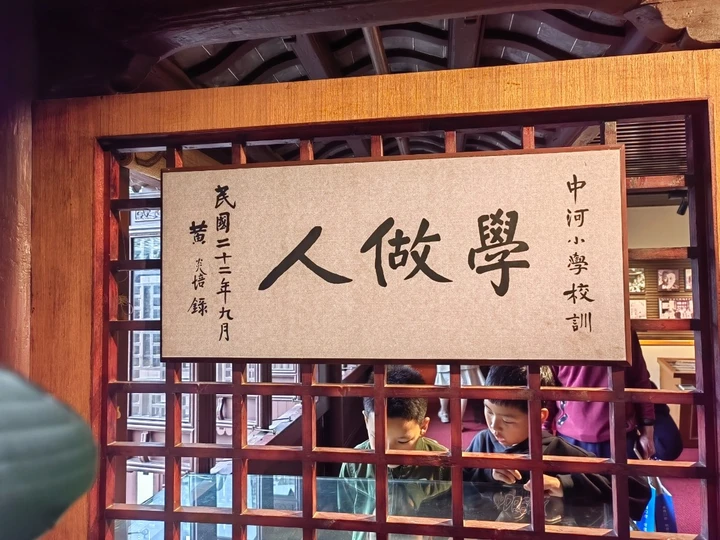 中河小學校訓
學做人
民國二十二年九月
黄炎培錄